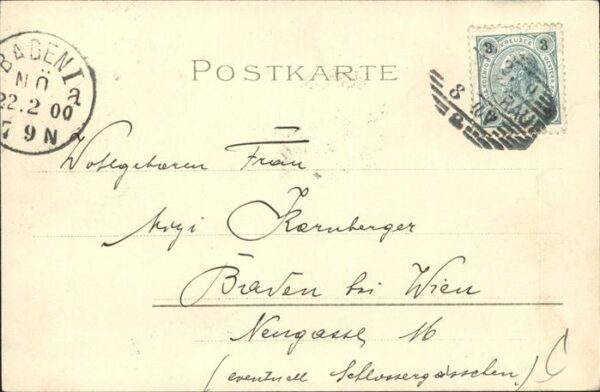 BADEN 1a
NÖ
22.2 00
7 9 N
POSTKARTE
3 KREUZER 3
Wohlgeboren Frau
Kornberger
Baden bei Wien
Neugasse 16
(eventuell Schlossergässchen)